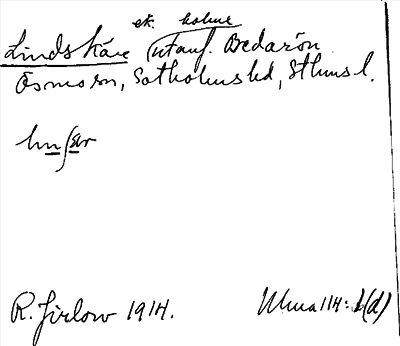 ek. holme
Lindskär (utanf. Bedarön
Ösmo sn, Sotholms hd, Sthms l.
R. Jirlow 1914. Ulma 114: 1(d)